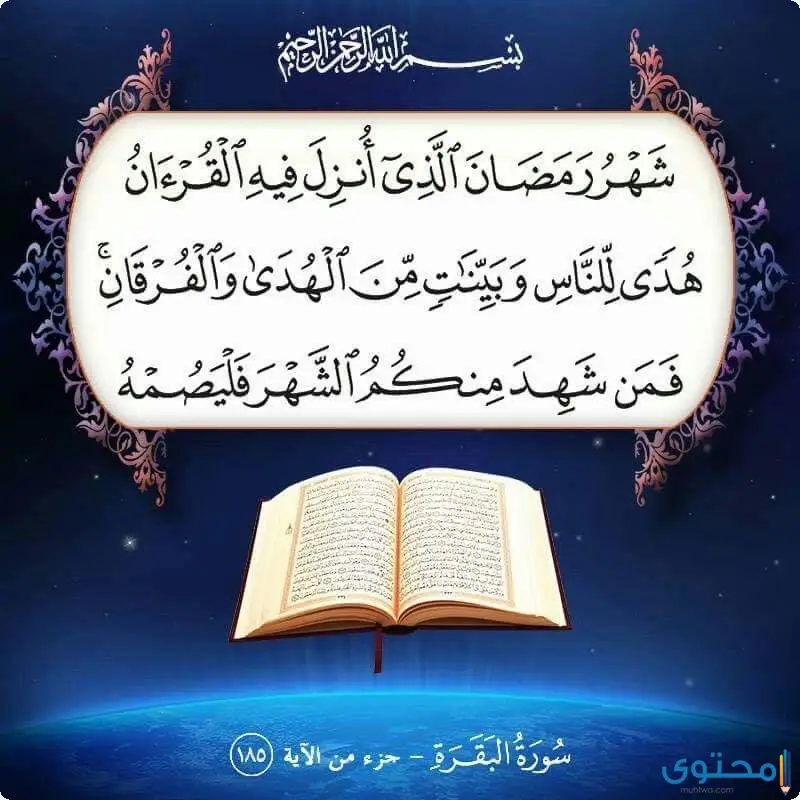 بسم الله الرحمن الرحيم
شَهْرُ رَمَضَانَ ٱلَّذِىٓ أُنزِلَ فِيهِ ٱلْقُرْءَانُ
هُدًى لِّلنَّاسِ وَبَيِّنَٰتٍ مِّنَ ٱلْهُدَىٰ وَٱلْفُرْقَانِ ۚ
فَمَن شَهِدَ مِنكُمُ ٱلشَّهْرَ فَلْيَصُمْهُ
سُورَةُ البَقَرَةِ - جزء من الآية ١٨٥
محتوى
muhtwa.com